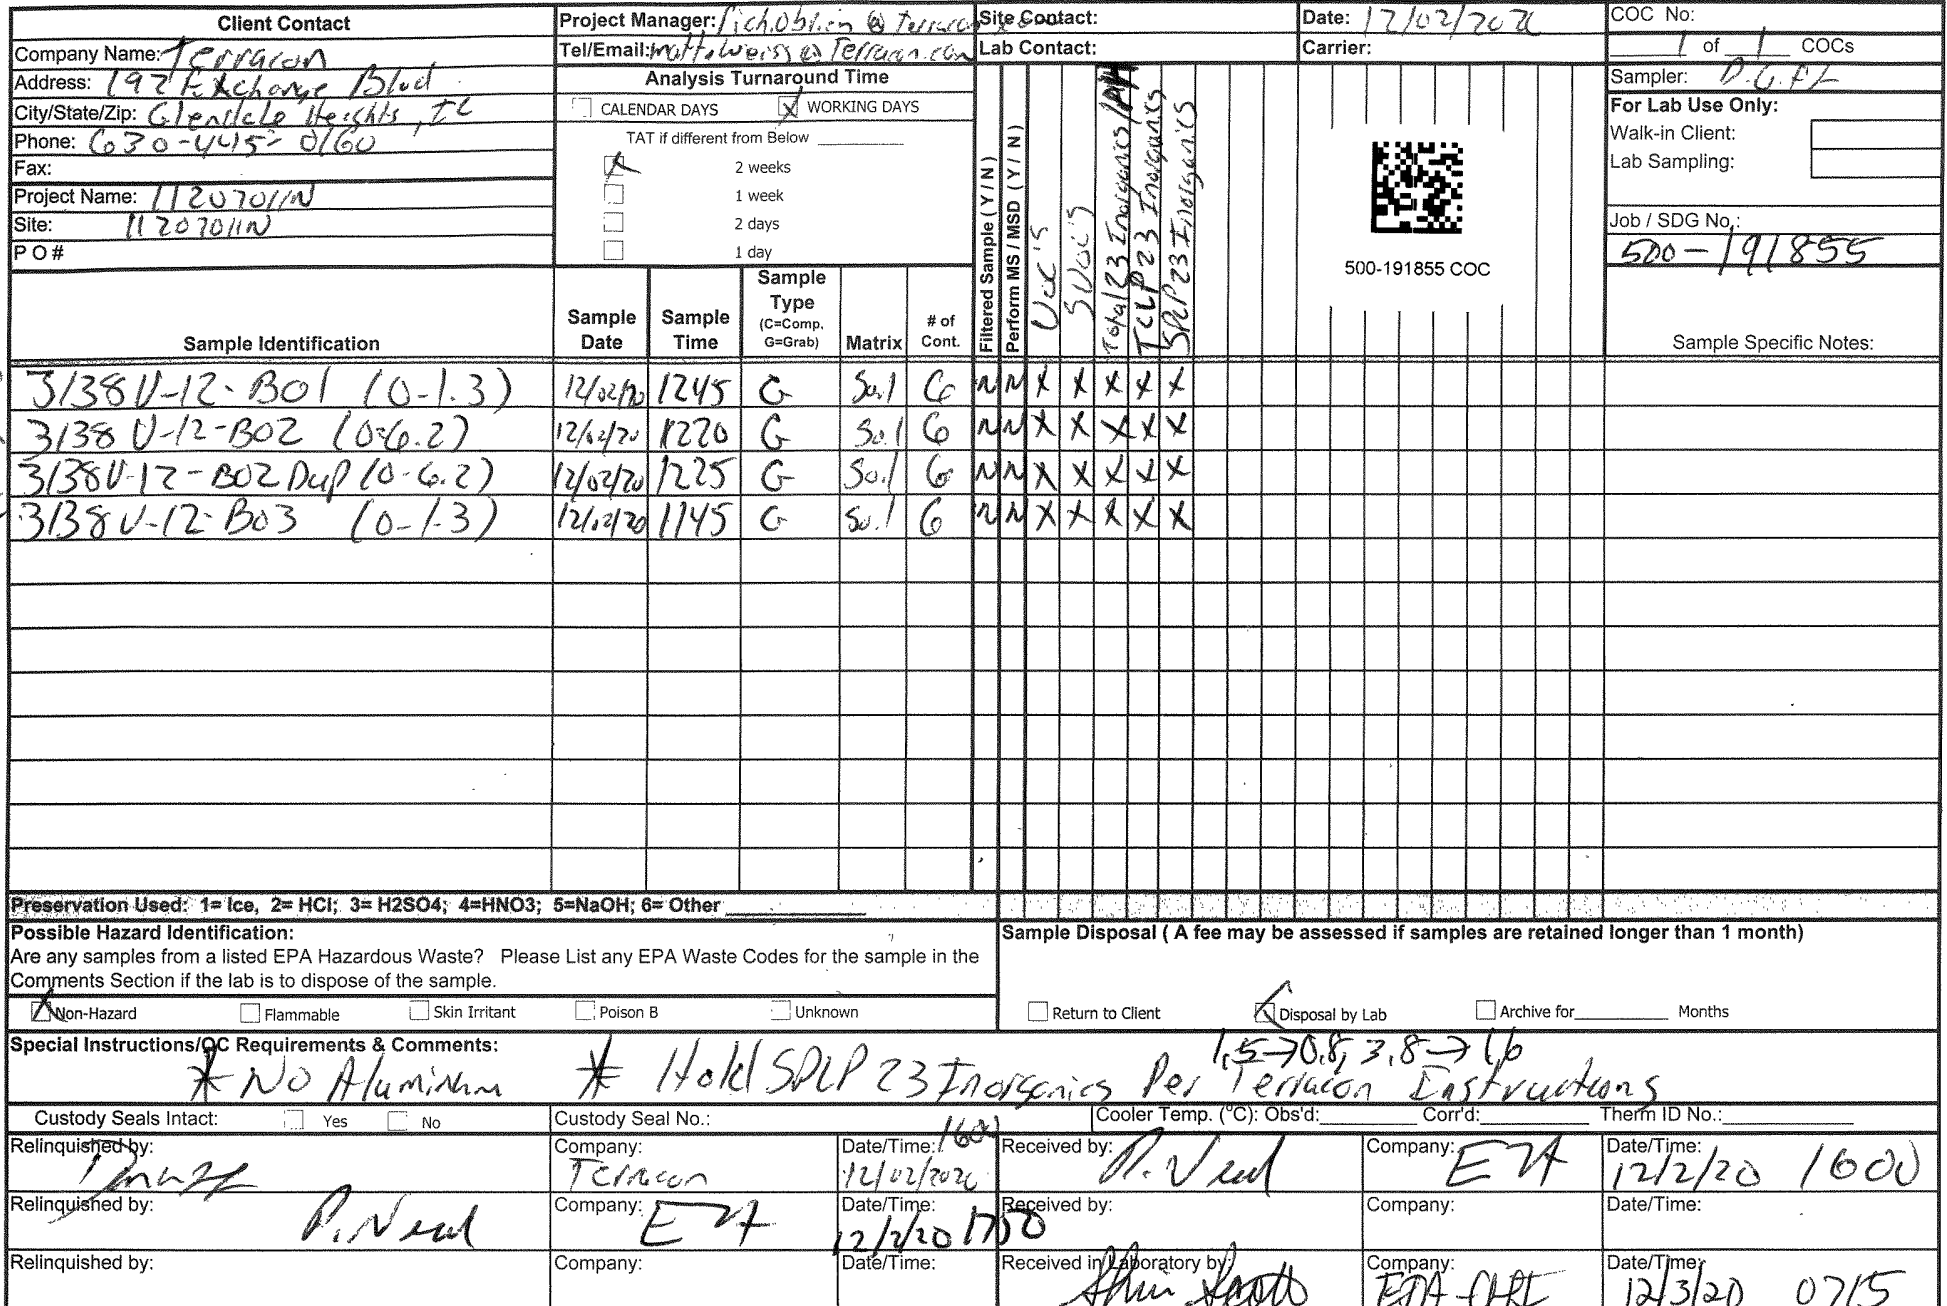 Client Contact
Company Name: Terracon
Address: 192 Exchange Blvd
City/State/Zip: Glendale Heights, IL
Phone: 630-445-0160
Fax:
Project Name: 1120701IN
Site: 1120701IN
P O #
Project Manager:
Tel/Email: matt.weiss@Terracon.com
Analysis Turnaround Time
CALENDAR DAYS X WORKING DAYS
TAT if different from Below
X 2 weeks
1 week
2 days
1 day
Site Contact:
Lab Contact:
Date: 12/02/2020
Carrier:
COC No:
1 of 1 COCs
Sampler:
For Lab Use Only:
Walk-in Client:
Lab Sampling:
Job / SDG No.:
500-191855
500-191855 COC
Sample Identification
Sample Date
Sample Time
Sample Type
(C=Comp, G=Grab)
Matrix
# of Cont.
Filtered Sample ( Y / N )
Perform MS / MSD ( Y / N )
VOC's
SVOC's
Total 23 Inorganics/pH
TCLP 23 Inorganics
SPLP 23 Inorganics
Sample Specific Notes:
3138V-12-B01 (0-1.3) 12/02/20 1245 G Soil 6 N N X X X X X
3138V-12-B02 (0-6.2) 12/02/20 1220 G Soil 6 N N X X X X X
3138V-12-B02 Dup (0-6.2) 12/02/20 1225 G Soil 6 N N X X X X X
3138V-12-B03 (0-1.3) 12/02/20 1145 G Soil 6 N N X X X X X
Preservation Used: 1= Ice, 2= HCl; 3= H2SO4; 4=HNO3; 5=NaOH; 6= Other
Possible Hazard Identification:
Are any samples from a listed EPA Hazardous Waste? Please List any EPA Waste Codes for the sample in the
Comments Section if the lab is to dispose of the sample.
X Non-Hazard Flammable Skin Irritant Poison B Unknown
Sample Disposal ( A fee may be assessed if samples are retained longer than 1 month)
Return to Client X Disposal by Lab Archive for Months
Special Instructions/QC Requirements & Comments:
1.5→0.8, 3.8→1.6
* No Aluminum * Hold SPLP 23 Inorganics Per Terracon Instructions
Custody Seals Intact: Yes No
Custody Seal No.:
Cooler Temp. (°C): Obs'd: Corr'd: Therm ID No.:
Relinquished by: Company: Terracon Date/Time: 12/02/2020 1600
Received by: P. Neal Company: ETA Date/Time: 12/2/20 1600
Relinquished by: P. Neal Company: ETA Date/Time: 12/2/20 1750
Received by: Company: Date/Time:
Relinquished by: Company: Date/Time:
Received in Laboratory by: Company: Date/Time: 12/3/20 0715